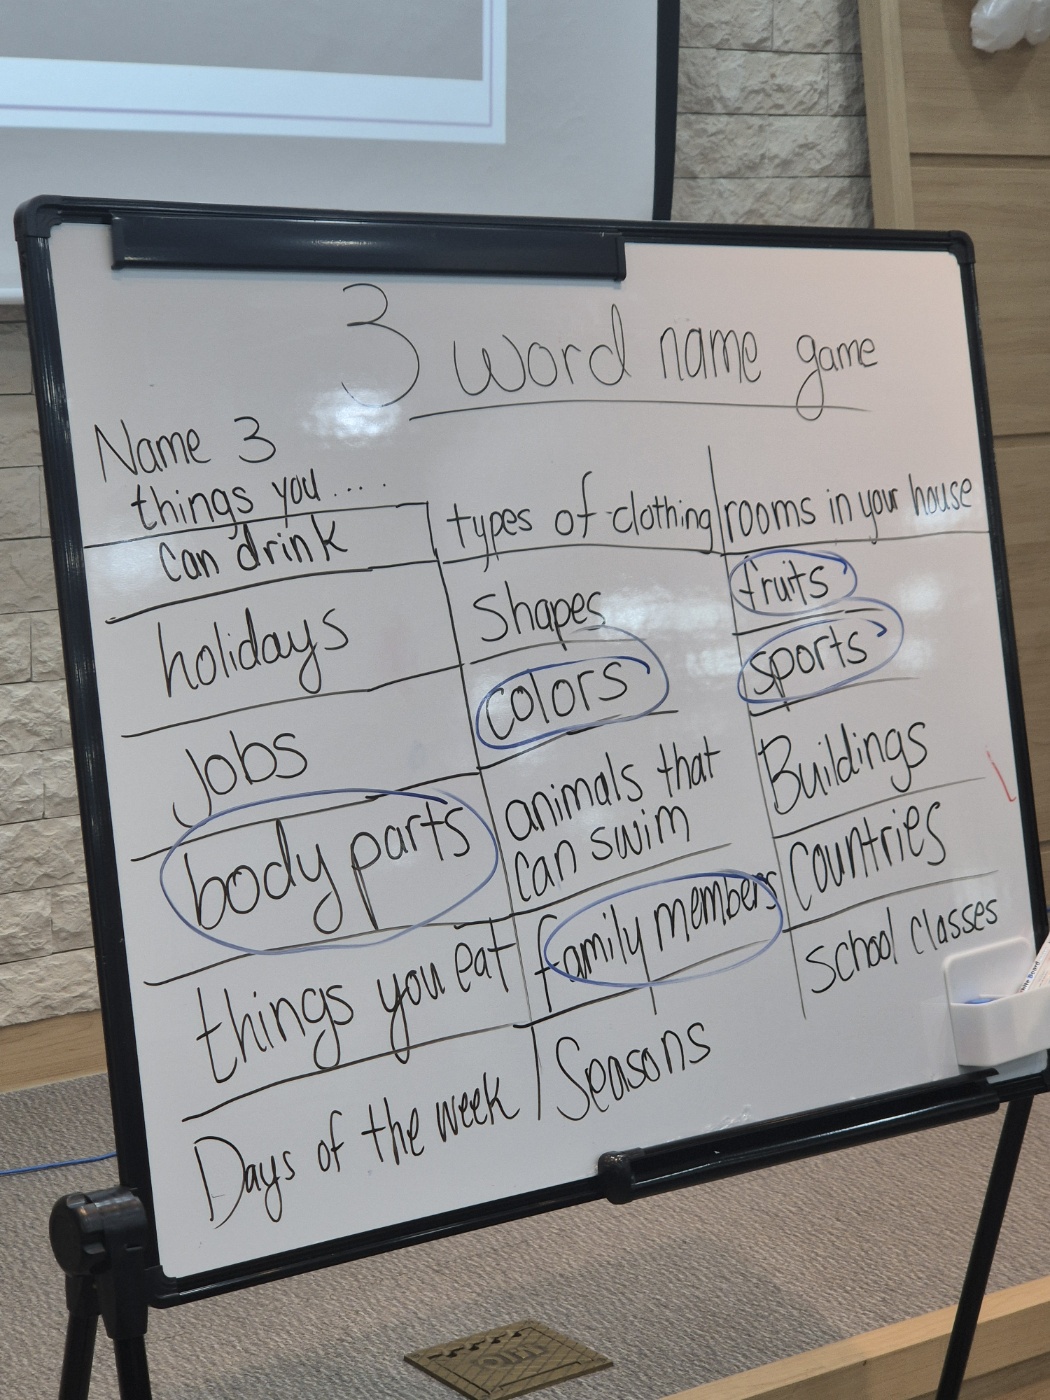 3 word name game
Name 3
things you ....
can drink
holidays
jobs
body parts
things you eat
Days of the week
types of clothing
Shapes
colors
animals that
can swim
family members
Seasons
rooms in your house
fruits
sports
Buildings
Countries
School classes